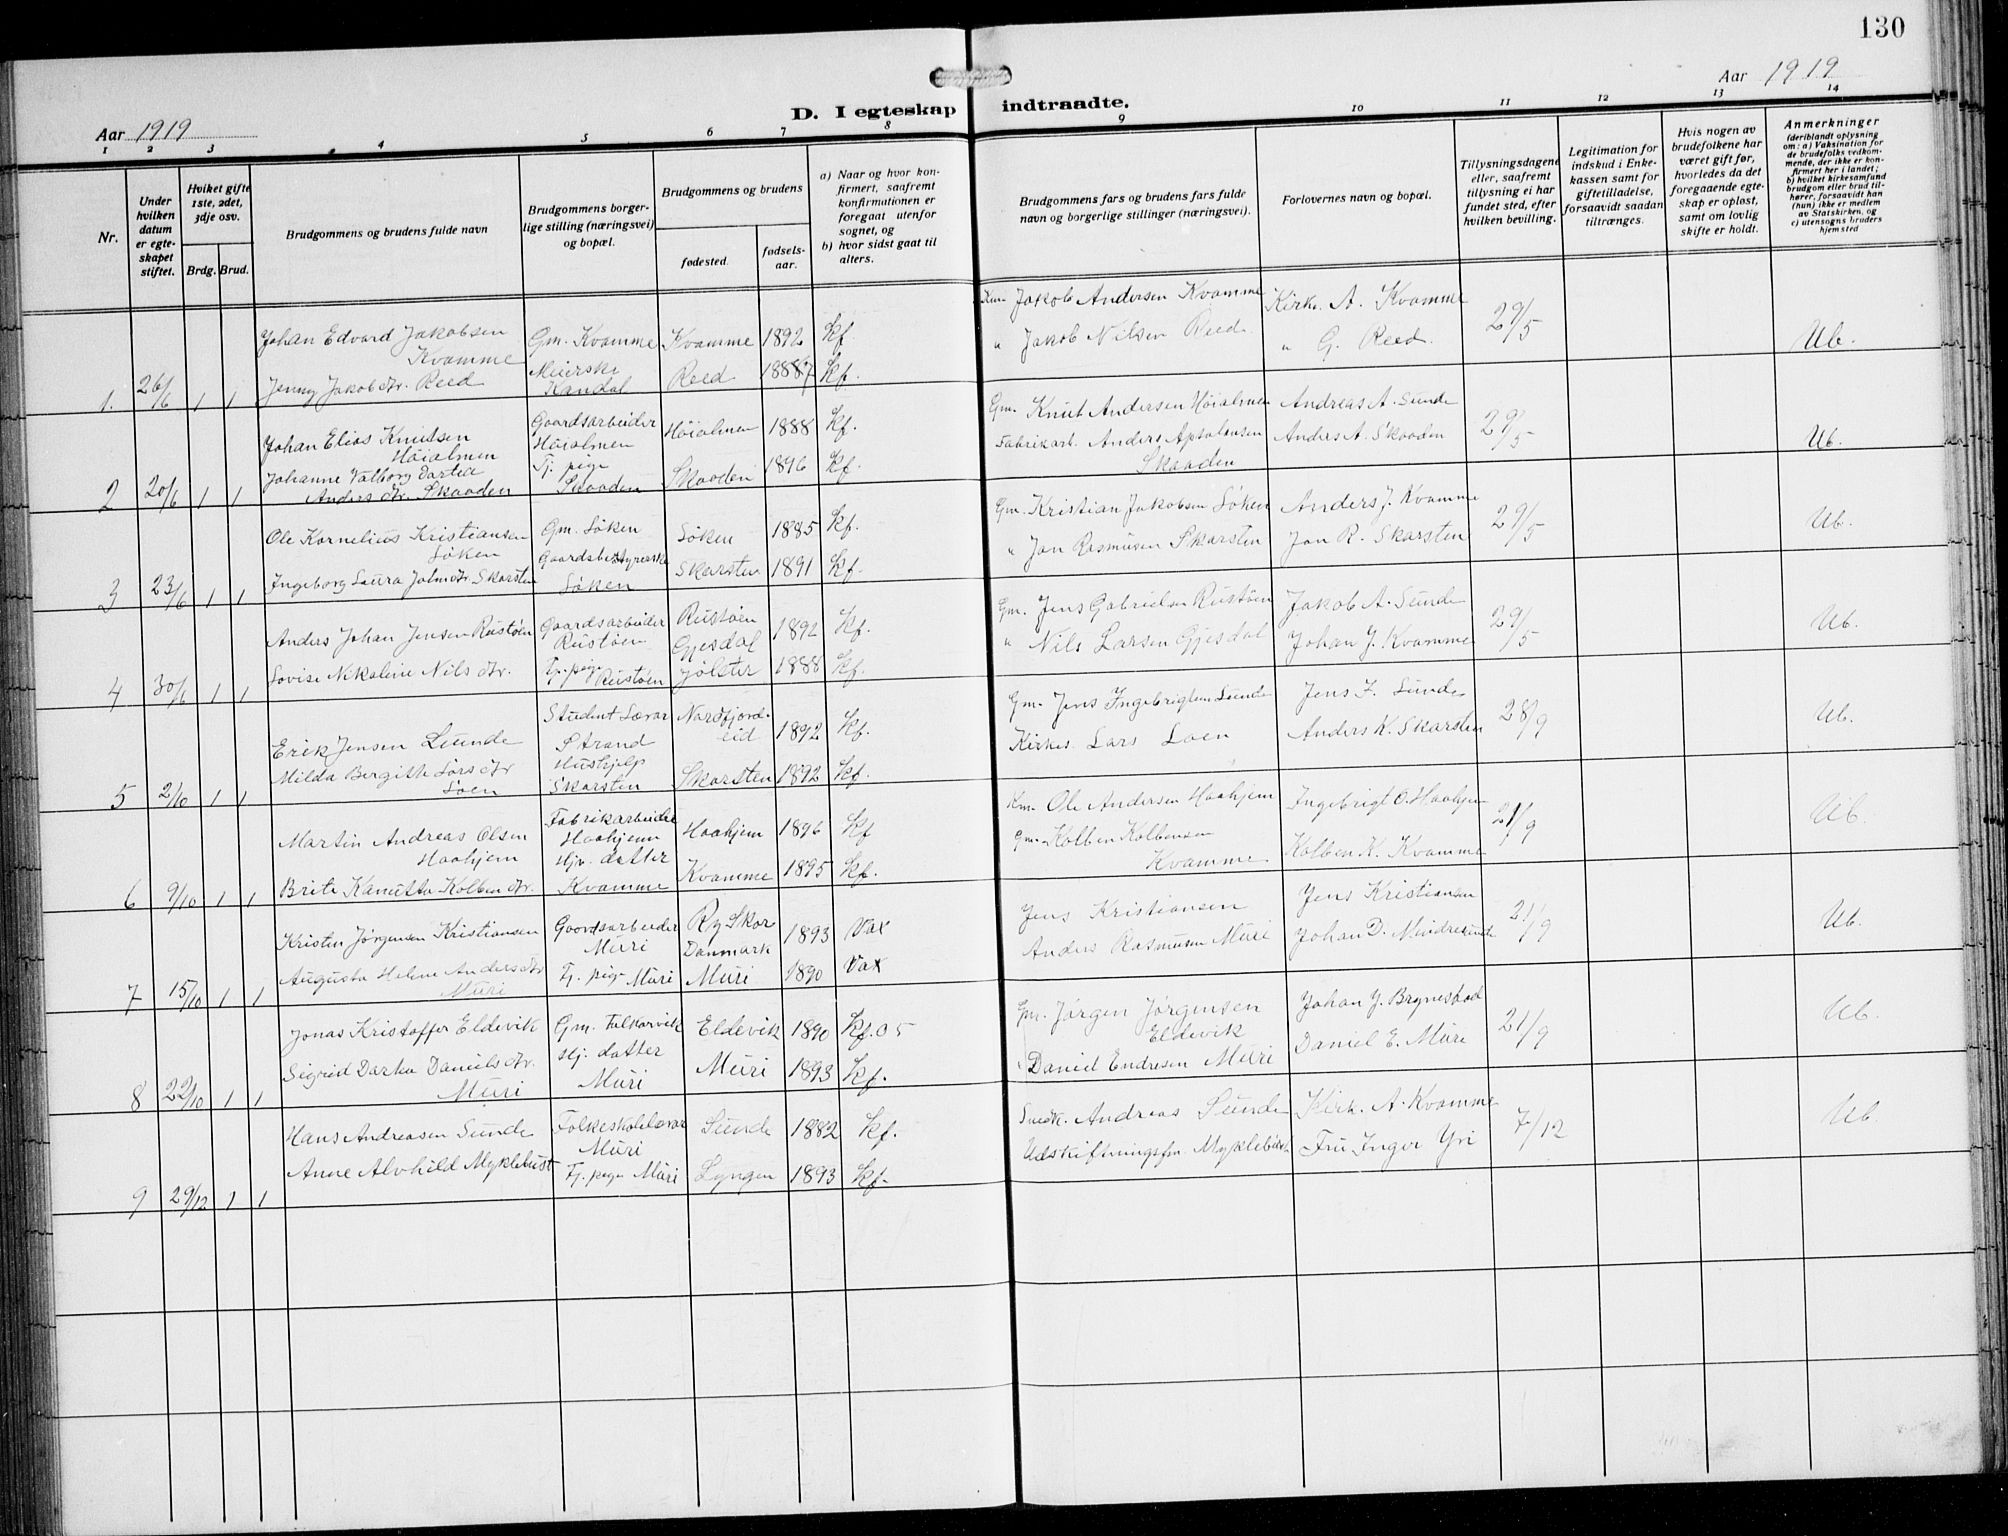 130
Aar 1919
Aar 1919
D. I egteskap indtraadte.
1 2 3 4 5 6 7 8 9 10 11 12 13 14
Nr.
Under hvilken datum er egte-skapet stiftet.
Hvilket gifte 1ste, 2det, 3dje osv.
Brdg. Brud.
Brudgommens og brudens fulde navn
Brudgommens borger-lige stilling (næringsvei) og bopæl.
Brudgommens og brudens
fødested.
fødsels-aar.
a) Naar og hvor kon-firmert, saafremt konfirmationen er foregaat utenfor sognet, og
b) hvor sidst gaat til alters.
Brudgommens fars og brudens fars fulde navn og borgerlige stillinger (næringsvei).
Forlovernes navn og bopæl.
Tillysningsdagene eller, saafremt tillysning ei har fundet sted, efter hvilken bevilling.
Legitimation for indskud i Enke-kassen samt for giftetilladelse, forsaavidt saadan tiltrænges.
Hvis nogen av brudefolkene har været gift før, hvorledes da det foregaaende egte-skap er opløst, samt om lovlig skifte er holdt.
Anmerkninger
(deriblandt oplysning om: a) Vaksination for de brudefolks vedkom-mende, der ikke er kon-firmert her i landet; b) hvilket kirkesamfund brudgom eller brud til-hører, forsaavidt han (hun) ikke er medlem av Statskirken, og c) utensogns bruders hjemsted
Johan Edvard Jakobsen Gm. Kvamme Kvamme 1892 kf Km. Jakob Andersen Kvamme Kirks. A. Kvamme 29/5 Ub.
Kvamme Meierske
1. 26/6 1 1 Jenny Jakobdtr. Reed Kandal Reed 1887 kf. " Jakob Nilsen Reed " G. Reed
Johan Elias Knutsen Gaardsarbeider Høialmen 1888 kf. Gm. Knut Andersen Høialmen Andreas A. Sunde 29/5 Ub.
Høialmen Høialmen
Johanne Valborg Dartea Tj. pige Skaaden 1896 kf. Fabrikarb. Anders Apsalonsen Anders A. Skaaden
2 20/6 1 1 Anders dtr. Skaaden Skaaden Skaaden
Ole Kornelius Kristiansen Gm. Løken Løken 1885 kf. Gm. Kristian Jakobsen Løken Anders J. Kvamme 29/5 Ub.
Løken Gaardsbestyrerske
3 23/6 1 1 Ingeborg Laura Johndtr. Skarsten Løken Skarsten 1891 kf. " Jon Rasmusen Skarsten Jon R. Skarsten
Anders Johan Jensen Rustøen Gaardsarbeider Rustøen 1892 kf. Gm. Jens Gabrielsen Rustøen Jakob A. Sunde 29/5 Ub.
Rustøen Gjesdal
4 30/6 1 1 Lovise Nikoline Nils dtr. Tj. pige Rustøen Jølster 1888 kf. " Nils Larsen Gjesdal Johan J. Kvamme
Erik Jensen Lunde Student Lærar Nordfjord-eid 1892 kf. Gm. Jens Ingebrigtsen Lunde Jens J. Lunde 28/9 Ub.
Strand
Milda Bergithe Lars dtr Hushjelp
5 2/10 1 1 Loen Skarsten Skarsten 1892 kf. Kirkes. Lars Loen Anders K. Skarsten
Martin Andreas Olsen Fabrikarbeider Haahjem 1896 kf Km. Ole Andersen Haahjem Ingebrigt O. Haahjem 21/9 Ub.
Haahjem Haahjem
Hjv. datter Gm. Kolben Kolbensen
6 9/10 1 1 Brite Kanutta Kolben dtr. Kvamme Kvamme 1895 kf. Kvamme Kolben K. Kvamme
Kristen Jørgensen Kristiansen Gaardsarbeider Ry Skor 1893 Vax Jens Kristiansen Jens Kristiansen 21/9 Ub.
Muri Danmark
Augusta Helene Anders dtr Tj. pige Muri Muri 1890 Vax Anders Rasmusen Muri Johan D. Mindresunde
7 15/10 1 1 Muri
Jonas Kristoffer Eldevik Gm. Falkarvik Eldevik 1890 kf. 05 Gm. Jørgen Jørgensen Johan J. Brynestad 21/9 Ub.
Eldevik
Sigrid Dartea Daniels dtr. Hj. datter Muri 1893 kf. Daniel Endresen Muri Daniel E. Muri
8 22/10 1 1 Muri Muri
Hans Andreasen Sunde Folkeskolelærar Sunde 1882 kf. Snedk. Andreas Sunde Kirk. A. Kvamme 7/12 Ub
Muri
Anne Alvhild Myklebust Tj. pige Muri Lyngen 1893 kf. Udskiftningsfm. Myklebust Fru Inger Yri
9 29/12 1 1